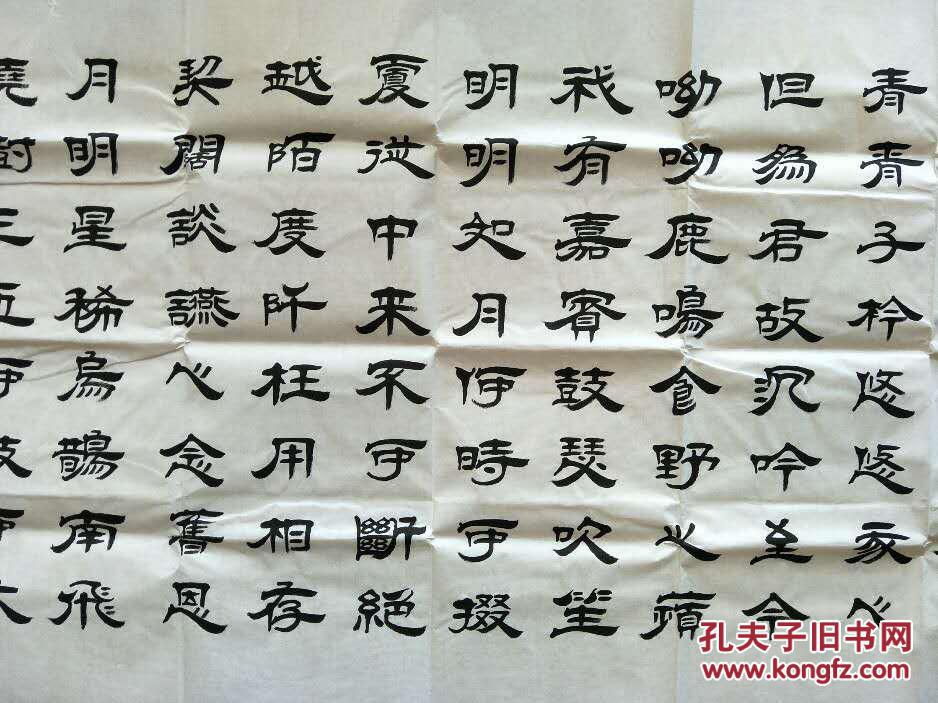 青青子衿悠悠我心
但為君故沉吟至今
呦呦鹿鳴食野之蘋
我有嘉賓鼓瑟吹笙
明明如月何時可掇
憂從中来不可斷絕
越陌度阡枉用相存
契闊談讌心念舊恩
月明星稀烏鵲南飛
孔夫子旧书网
www.kongfz.com